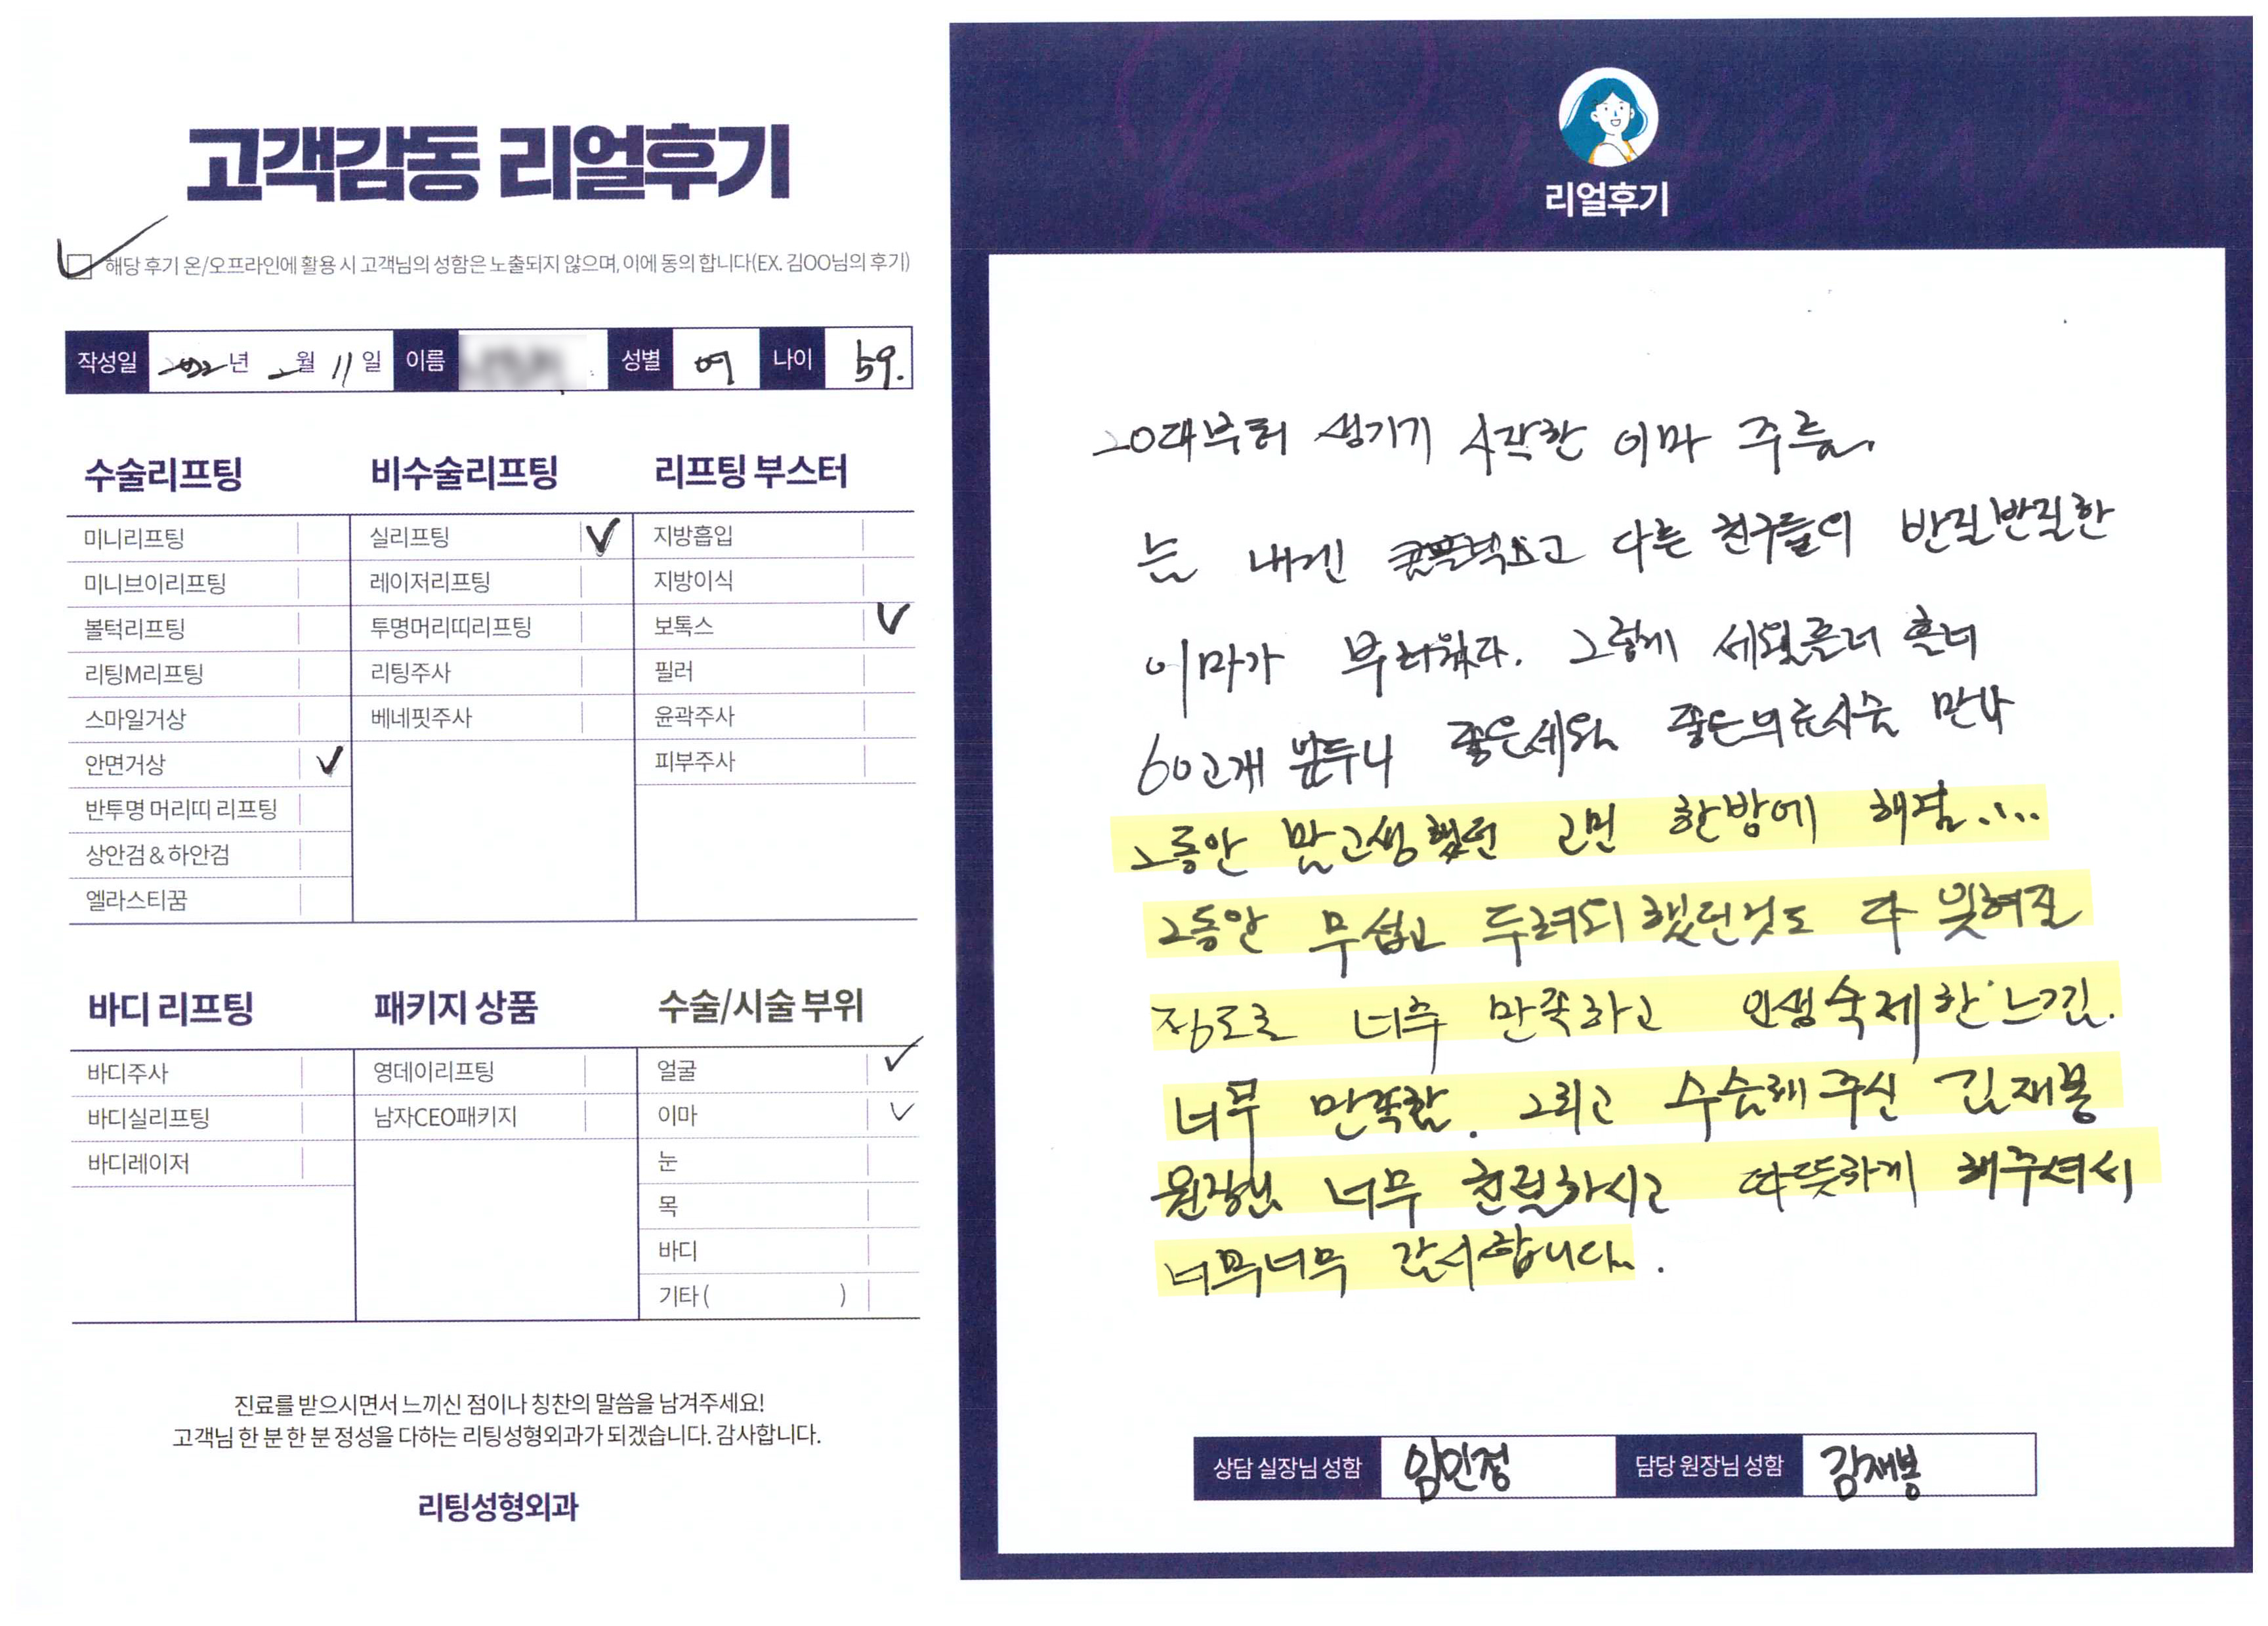 고객감동 리얼후기
해당 후기 온/오프라인에 활용 시 고객님의 성함은 노출되지 않으며, 이에 동의 합니다(EX. 김OO님의 후기)
작성일 2022년 2월 11일 이름 성별 여 나이 59.
수술리프팅
미니리프팅
미니브이리프팅
볼턱리프팅
리팅M리프팅
스마일거상
안면거상 ✓
반투명 머리띠 리프팅
상안검 & 하안검
엘라스티꿈
비수술리프팅
실리프팅 ✓
레이저리프팅
투명머리띠리프팅
리팅주사
베네핏주사
리프팅 부스터
지방흡입
지방이식
보톡스 ✓
필러
윤곽주사
피부주사
바디 리프팅
바디주사
바디실리프팅
바디레이저
패키지 상품
영데이리프팅
남자CEO패키지
수술/시술 부위
얼굴 ✓
이마 ✓
눈
목
바디
기타 ( )
진료를 받으시면서 느끼신 점이나 칭찬의 말씀을 남겨주세요!
고객님 한 분 한 분 정성을 다하는 리팅성형외과가 되겠습니다. 감사합니다.
리팅성형외과
리얼후기
20대부터 생기기 시작한 이마 주름
는 내겐 콤플렉스고 다른 친구들의 반질반질한
이마가 부러웠다. 그렇게 세월흘러 흘러
60고개 앞두니 좋은세월 좋은의료시술 만나
그동안 맘고생했던 고민 한방에 해결....
그동안 무섭고 두려워 했던것도 다 잊혀질
정도로 너무 만족하고 인생숙제한 느낌.
너무 만족함. 그리고 수술해 주신 김재봉
원장님 너무 친절하시고 따뜻하게 해주셔서
너무너무 감사합니다.
상담 실장님 성함 임민정 담당 원장님 성함 김재봉